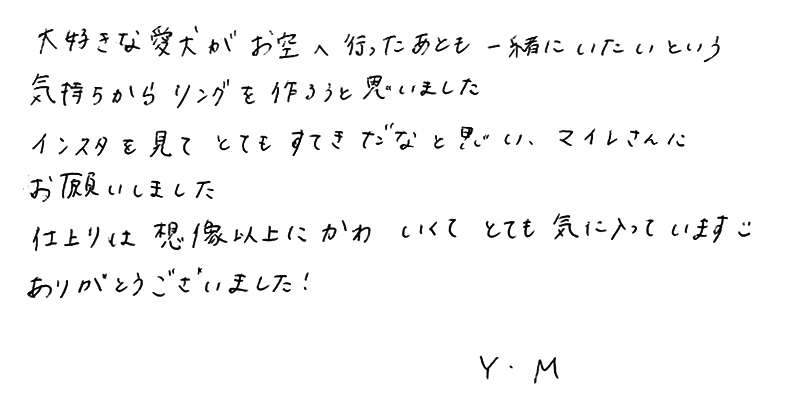 大好きな愛犬がお空へ行ったあとも一緒にいたいという
気持ちからリングを作ろうと思いました
インスタを見てとてもすてきだなと思い、マイレさんに
お願いしました
仕上りは想像以上にかわいくてとても気に入っています
ありがとうございました!
Y.M